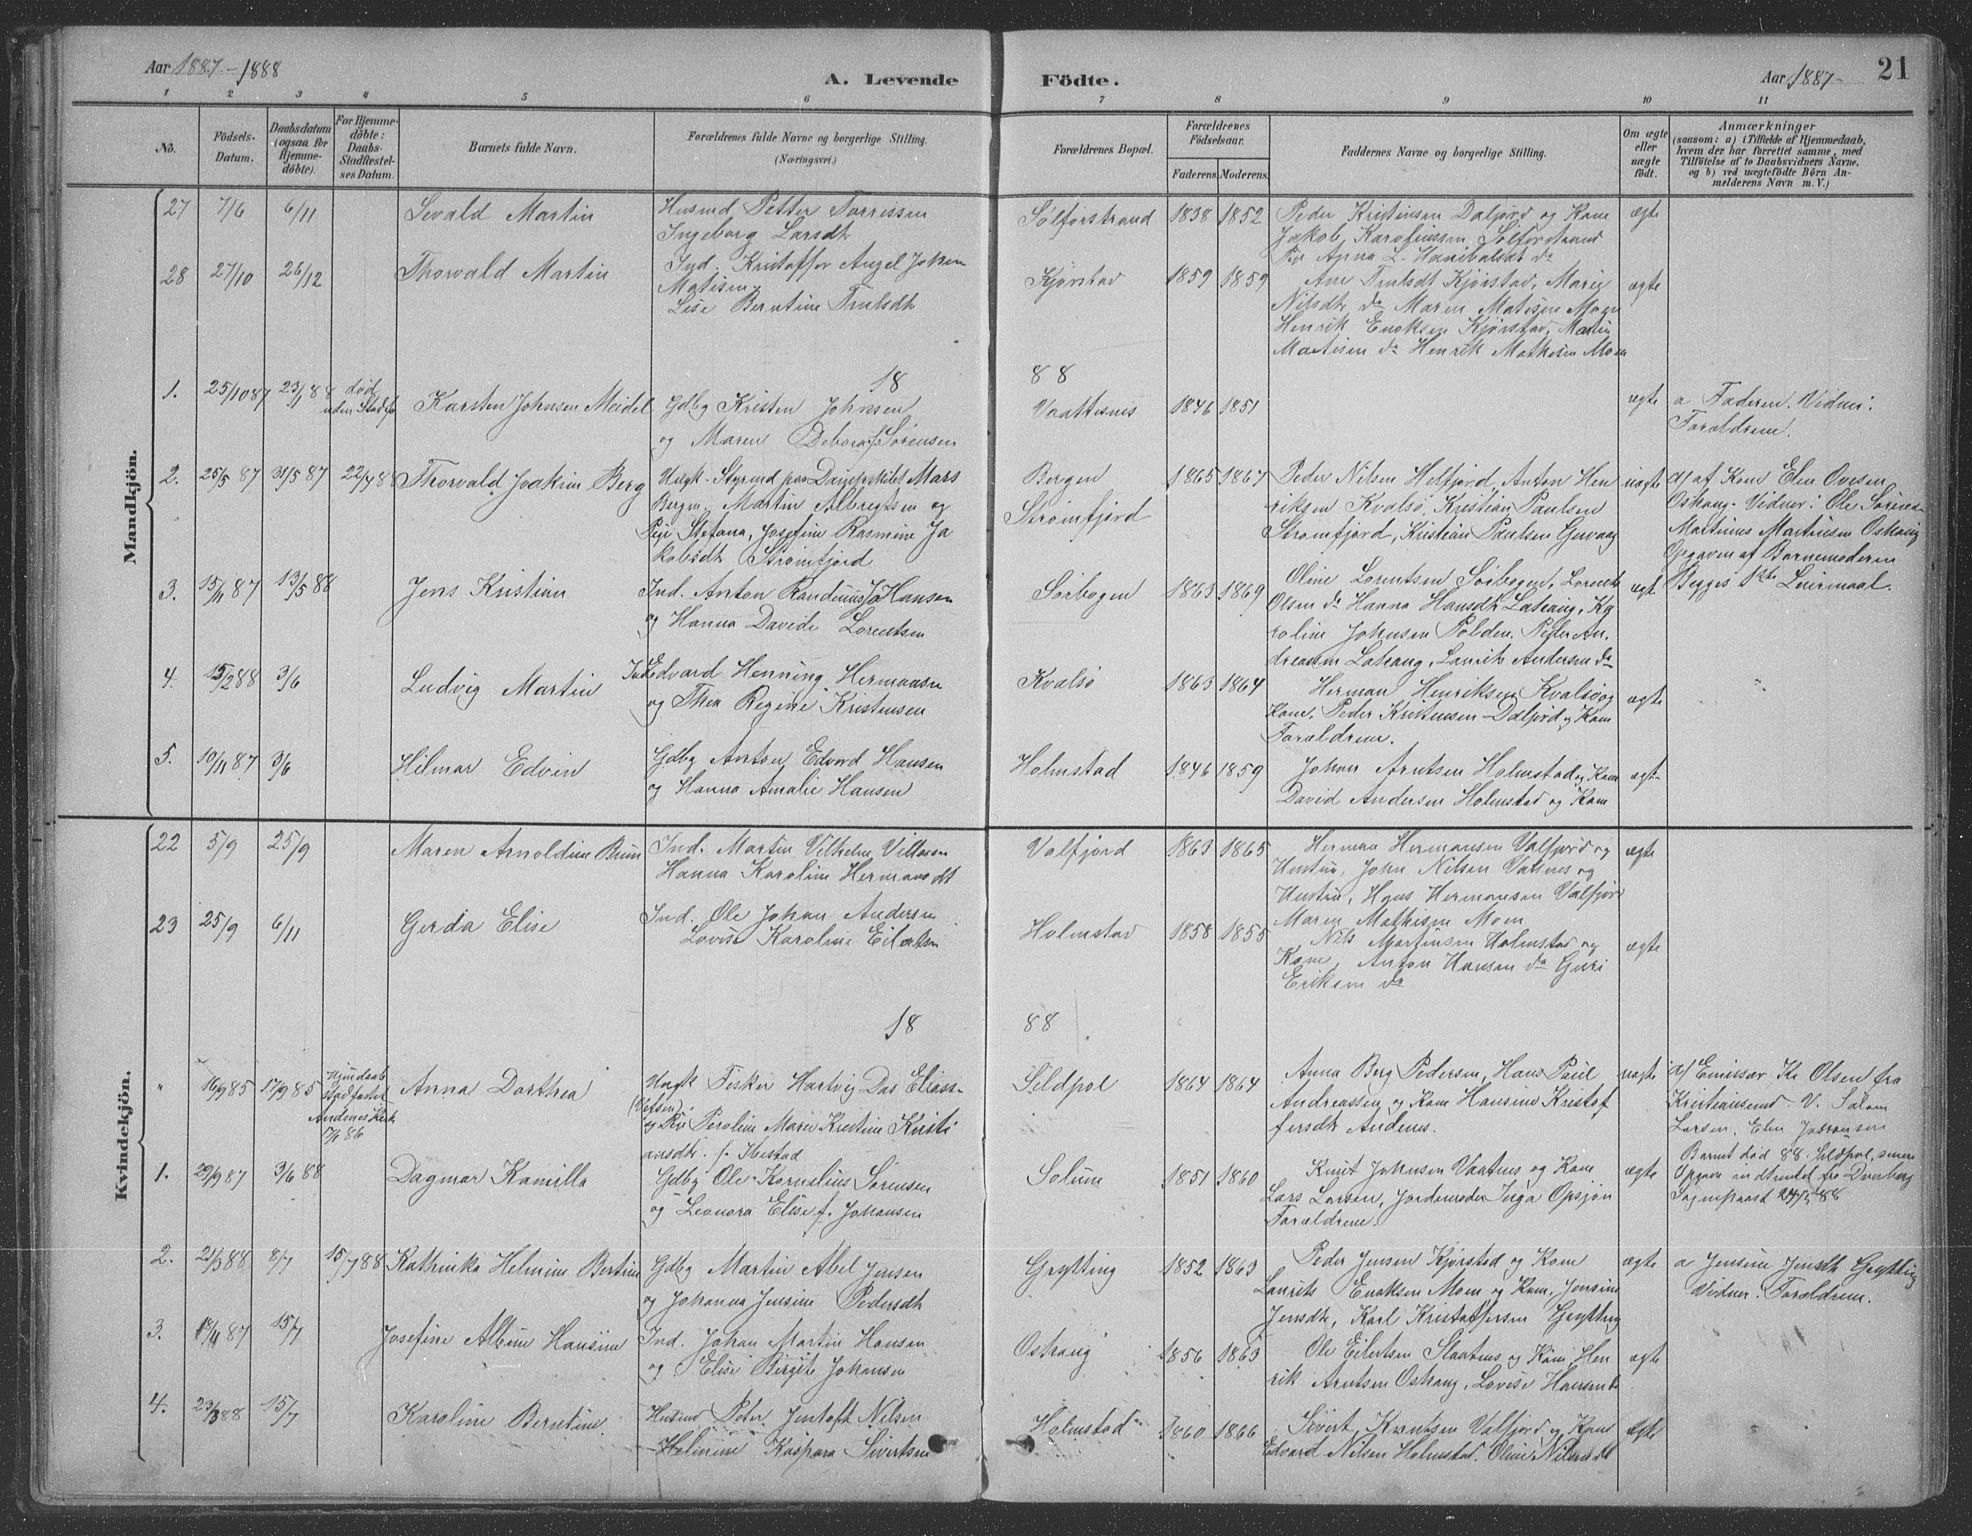 Aar 1887-1888
A. Levende Födte.
Aar 1887-
21
1 2 3 4 5 6 7 8 9 10 11
No.
Födsels-Datum.
Daabsdatum (ogsaa for Hjemmedöbte).
For Hjemmedöbte: Daabs-Stadfæstelses Datum.
Barnets fulde Navn.
Forældrenes fulde Navne og borgerlige Stilling. (Næringsvei.)
Forældrenes Bopæl.
Forældrenes Födselsaar.
Faderens. Moderens.
Faddernes Navne og borgerlige Stilling.
Om ægte eller uægte födt.
Anmærkninger
(saasom: a) i Tilfælde af Hjemmedaab, hvem der har forrettet samme, med Tilföielse af to Daabsvidners Navne, og b) ved uægtefödte Börn Anmelderens Navn m. V.)
Mandkjön.
27 7/6 6/11 Sevald Martin
Husmd Petter Torrissen
Ingeborg Larsdt
Sølforstrand 1838 1852
Peder Kristensen Daljord og Kone
Jakob Karolinssen Sølforstrand
Pige Anna L. Hanibaldt do
ægte
28 27/10 26/12 Thorvald Martin
Ind. Kristoffer Angel Johan
Matisen
Lise Berntine Trulsdt
Kjørstad 1859 1859
Ane Trulsdt Kjørstad, Marie
Nilsdt do Maren Matisen Moen
Henrik Enoksen Kjørstad, Martin
Matisen do Henrik Mathisen Moen
ægte
1888
1. 25/10 87 23/1 88 død uden Stadf.
Karsten Johnsen Meidel
Gdbg Kristen Johnsen
og Maren Debora f. Sørensen
Vaattesnis 1846 1851
ægte
a Faderen. Vidner:
Forældrene.
2. 25/5 87 31/5 87 22/4 88 Thorvald Joakim Berg
Ungk. Styrmd paa Dampskibet Mars
Bergen Martin Albregtsen og
Pige Stefana, Josefine Rasmine Ja
kobsdt Strømfjord
Bergen
Strømfjord
1865 1867
Peder Nilsen Helfjord, Anton Hen
riksen Kvalsø, Kristian Paulsen
Strømfjord, Kristian Paulsen
uægte
a) af Kone Elen Ovesen
Oshaug. Vidner: Ole Sørens.
Martinus Martinsen Oshaug
Opgaven af Barnemoderen
Begges 1ste Leiermaal.
3. 15/11 87 13/5 88 Jens Kristian
Ind. Anton Randinius Johansen
og Hanna Davide Lorentsen
Sørbogen 1863 1869
Oline Lorentsen Sørbogen, Lorents
Olsen do Hanna Hansdt Lahaug, Ka
roline Johnsen Polden, Peder An
dreassen Lahaug, Laurits Andersen do
ægt
4. 15/2 88 3/6 Ludvig Martin
Ind. Edvard Henning Hermansen
og Thea Regine Kristensen
Kvalsø 1863 1864
Herman Henriksen Kvalsø og
Kone, Peder Kristensen Daljord og Kone
Forældrene.
ægte
5. 10/11 87 3/6 Hilmar Edvin
Gdbg Anton Edvard Hansen
og Hanna Amalie Hansen
Holmstad 1846 1859
Johan Arntsen Holmstad og Kone
David Andersen Holmstad og Kone
ægte
Kvindekjön.
22 5/9 25/9 Maren Arnoldine Brun
Ind. Martin Vilhelm Villasen
Hanna Karoline Hermansdt
Valfjord 1863 1865
Herman Hermansen Valfjord og
Hustru, John Nilsen Vatnes og
Hustru, Hans Hermansen Valfjord
Maren Mathisen Moen
ægte
23 25/9 6/11 Gerda Elise
Ind. Ole Johan Andersen
Lovise Karoline Eilertsen
Holmstad 1858 1855
Nils Martinsen Holmstad og
Kone, Anton Hansen do Guri
Eriksen do
ægte
1888
" 16/9 85 17/9 85 Hjemdaab stadfæstet Andenes Kirke 17/1 86
Anna Dorthea
Ungk Fisker Hartvig Das Eliass-
og Pige Peroline Marie Kristine Kristi
ansdt. f. Ibestad
Seldpol 1864 1864
Anna Berg Pedersen, Hans Paul
Andreassen og Kone Hansine Kristof
fersdt Andenes.
uægte
a) Emissær K. Olsen fra
Kristiansund. V. Salom
Larsen, Elen Jakobsen
Barnet død 88. Seldpol, senere
Opgave indhentet fra Dverberg
Sognepræst
1. 29/9 87 3/6 88 Dagmar Kamilla
Gdbg Ole Kornelius Sørensen
og Leonora Elise f. Johansen
Solum 1851 1860
Knut Johnsen Vaatnes og Kone
Lars Larsen, Jordemoder Inga Opsjøn
Forældrene.
ægte
2. 21/3 88 8/7 15/7 88 Kathinka Helmine Bertine
Gdbg Martin Abel Jensen
og Johanna Jensine Pedersdt
Grytting 1852 1863
Peder Jensen Kjørstad og Kone
Laurits Enoksen Moen og Kone, Jensine
Jensdt, Karl Kristoffersen Grytting
ægte
a Jensine Jensdt Grytting
Vidner. Forældrene.
3. 17/11 87 15/7 Josefine Albine Hansine
Ind. Johan Martin Hansen
og Elise Birgite Johansen
Oshaug 1856 1863
Ole Eilertsen Slaatnes og Kone, Hen
rik Arntsen Oshaug, Lovise Hansen do
ægte
4. 23/3 88 15/7 Karoline Berntine
Husmd Peter Jentoft Nilsen
Helmine Kaspara Sivertsen
Holmstad 1860 1866
Sivert Knutsen Valfjord og Kone
Edvard Nilsen Holmstad, Oline Nilsen do
ægte